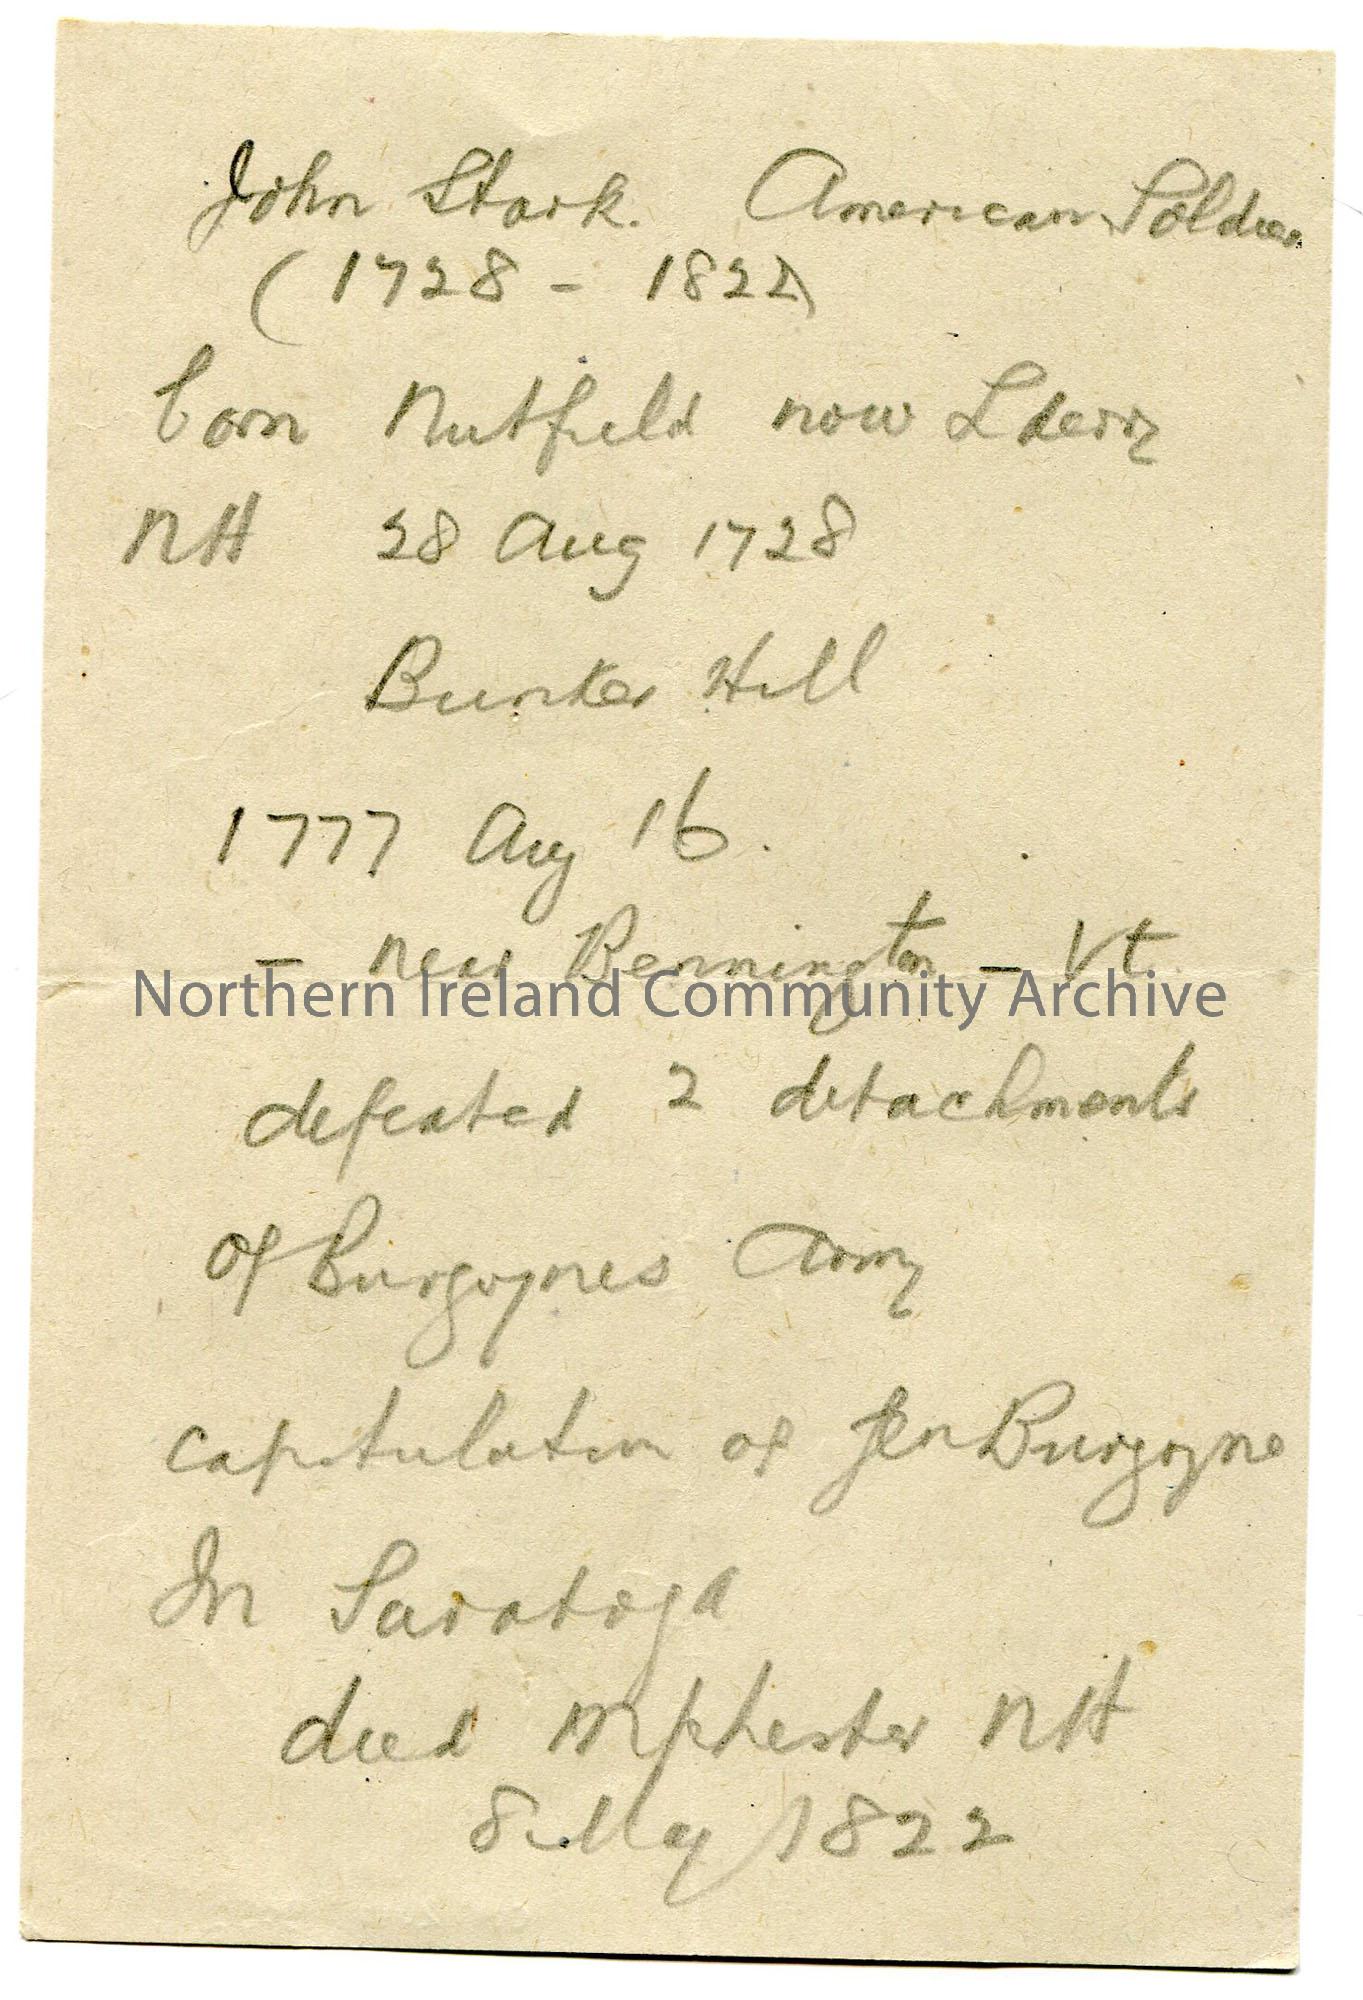 John Stark. American Soldier
(1728 - 1822)
born Nutfield now Lderry
NH 28 Aug 1728
Bunker Hill
1777 Aug 16.
- near Bennington - Vt.
Northern Ireland Community Archive
defeated 2 detachments
of Burgoynes Army
capitulation of Gen Burgoyne
In Saratoga
died Mphester NH
8 May 1822